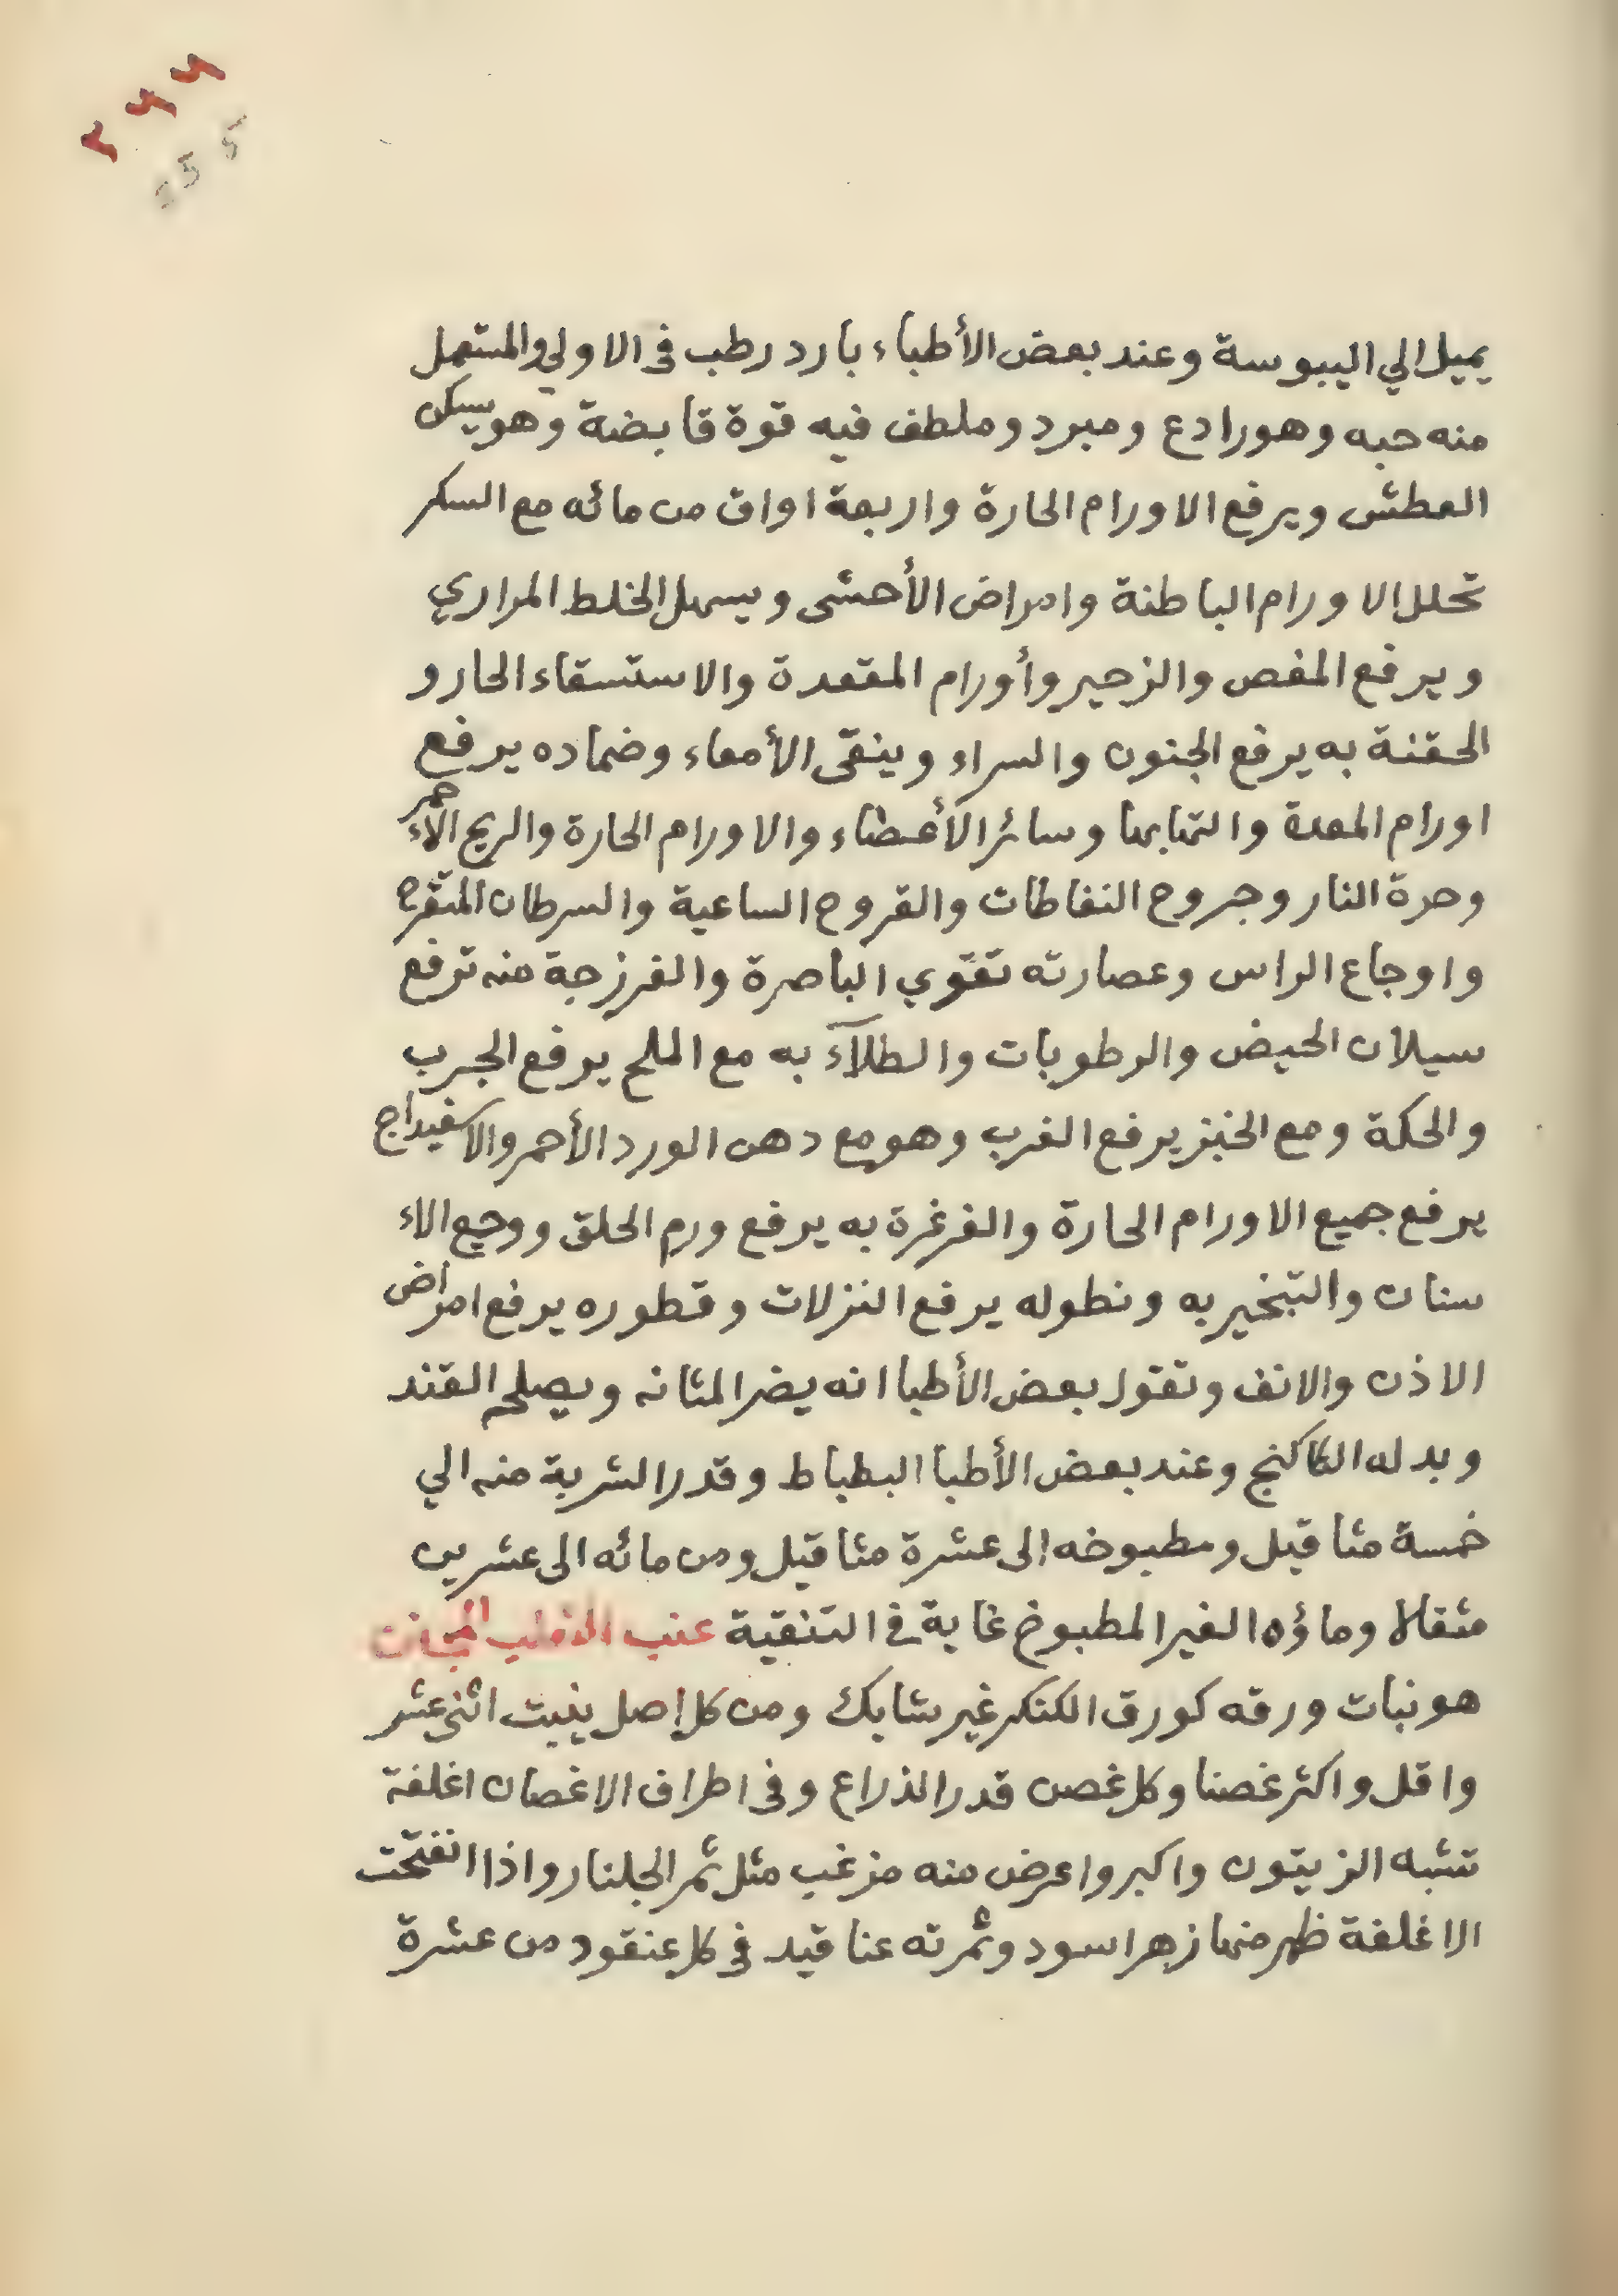 يميل الي اليبوسة وعند بعض الأطباء بارد رطب فى الاولي والمستعمل
منه حبه وهو رادع ومبرد وملطف فيه قوة قابضة وهو يسكن
العطش ويرفع الاورام الحارة واربعة اواق من مائه مع السكر
تحلل الاورام الباطنة وامراض الأحشى ويسهل الخلط المراري
ويرفع المغص والزحير وأورام المقعدة والاستسقاء الحار و
الحقنة به يرفع الجنون والسراء وينقى الأمعاء وضماده يرفع
اورام المعدة و وسائر الأعضاء والاورام الحارة والريح الأحمر
وحرة النار وجروح النفاطات والقروح الساعية والسرطان المتقرح
واوجاع الراس وعصارته تقوي الباصرة والفرزجة منه ترفع
سيلان الحيض والرطوبات والطلآء به مع الملح يرفع الجرب
والحكة ومع الخبز يرفع الغرب وهو مع دهن الورد الأحمر والاسفيداج
يرفع جميع الاورام الحارة والغرغرة به يرفع ورم الحلق ووجع الاء
سنان والتبخير به ونطوله يرفع النزلات وقطوره يرفع امراض
الاذن والانف وتقول بعض الأطبا انه يضر المثانه ويصلحه القند
وبدله الكاكنج وعند بعض الأطبا البطباط وقدر الشربة منه الي
خمسة مثاقيل ومطبوخه الى عشرة مثاقيل ومن مائه الى عشرين
مثقالا وماؤه الغير المطبوخ غاية فى التنقية عنب الثعلب
هو نبات ورقه كورق الكنكر غير بشابك ومن كل اصل ينبت اثنى عشر
واقل واكثر غصنا وكل غصن قدر الذراع وفى اطراف الاغصان اغلفة
تشبه الزيتون واكبر واعرض منه مزغب مثل ثمر الجلنار واذا انفتحت
الاغلفة ظهر منها زهر اسود وثمرته عناقيد فى كل عنقود من عشرة